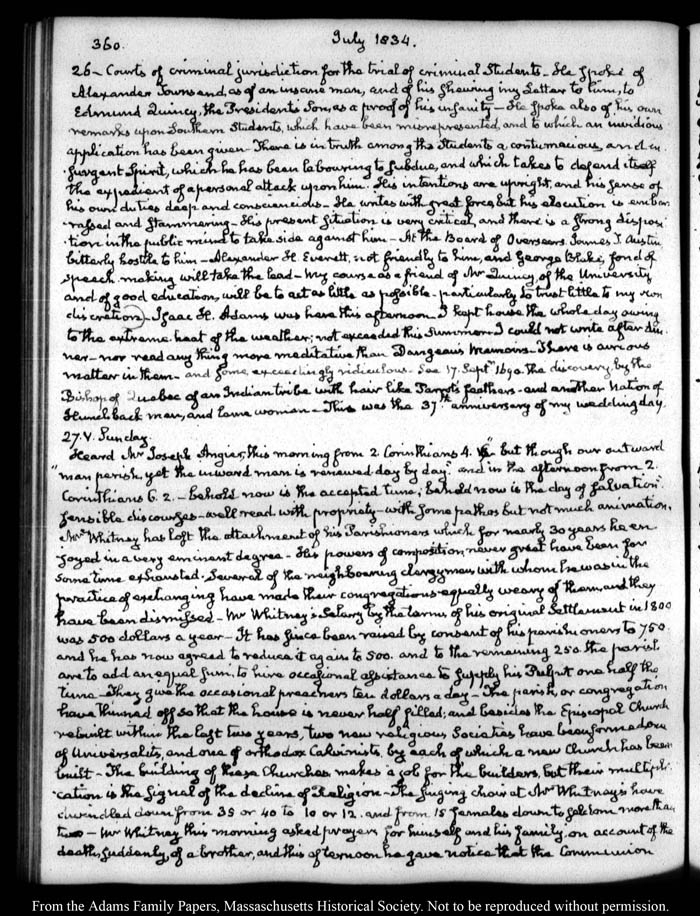 360.
July 1834.
26 - Courts of criminal jurisdiction for the trial of criminal Students - He spoke of
Alexander Townsend, as of an insane man, and of his shewing my Letter to him, to
Edmund Quincy, the Presidents Son, as a proof of his insanity - He spoke also of his own
remarks upon Southern Students, which have been misrepresented, and to which an invidious
application has been given - There is in truth among the Students a contumacious, and in-
surgent Spirit, which he has been labouring to subdue, and which takes to defend itself
the expedient of a personal attack upon him. His intentions are upright, and his sense of
his own duties deep and conscientious - He writes with great force, but his elocution is embar-
rassed and stammering - His present situation is very critical, and there is a strong disposi-
tion in the public mind to take side against him - At the Board of Overseers James T. Austin
bitterly hostile to him - Alexander H. Everett, not friendly to him, and George Blake, fond of
speech making will take the lead - My course as a friend of Mr Quincy, of the University
and of good education, will be to act as little as possible - particularly to trust little to my own
discretion - Isaac H. Adams was here this afternoon. I kept house the whole day owing
to the extreme heat of the weather; not exceeded this Summer - I could not write after din-
ner - nor read any thing more meditative than Dangeau's Memoirs - There is curious
matter in them - and some, exceedingly ridiculous - See 17. Septr 1690. the discovery, by the
Bishop of Quebec of an Indian tribe with hair like Parrots feathers - and another Nation of
Hunch back men, and lame women - This was the 37th anniversary of my wedding day.
27. V. Sunday.
Heard Mr Joseph Angier, this morning from 2 Corinthians 4. 16 "but though our outward
"man perish, yet the inward man is renewed day by day." and in the afternoon from 2.
Corinthians 6. 2. - behold now is the accepted time; behold now is the day of salvation".
Sensible discourses - well read with propriety - with some pathos but not much animation.
Mr Whitney has lost the attachment of his Parishioners which for nearly 30 years he en-
joyed in a very eminent degree - His powers of composition, never great have been for
some time exhausted. Several of the neighbouring clergymen with whom he was in the
practice of exchanging have made their congregations equally weary of them, and they
have been dismissed - Mr Whitney's Salary by the terms of his original Settlement in 1800
was 500 dollars a year - It has since been raised by consent of his parishioners to 750.
and he has now agreed to reduce it again to 500. and to the remaining 250. the parish
are to add an equal sum, to hire occasional assistance to supply his Pulpit one half the
time - They give the occasional preachers ten dollars a day - The parish, or congregation
have thinned off so that the house is never half filled; and besides the Episcopal Church
rebuilt within the last two years, two new religious Societies have been formed one
of Universalists, and one of orthodox Calvinists, by each of which a new Church has been
built - The building of these Churches makes a job for the builders, but their multipli-
cation is the signal of the decline of Religion - The singing choir at Mr Whitney's have
dwindled down from 35 or 40 to 10 or 12. and from 15 females down to seldom more than
two - Mr Whitney this morning asked prayers for himself and his family, on account of the
death, suddenly, of a brother, and this afternoon he gave notice that the Communion
From the Adams Family Papers, Massachusetts Historical Society. Not to be reproduced without permission.